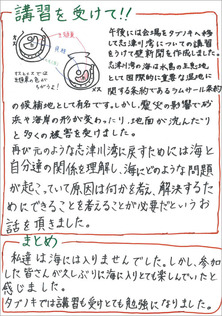 講習を受けて!!
午後には会場をタブノキへ移
して志津川湾についての講習
をうけて壁新聞を作成しました。
志津川湾の海は水鳥の生息地
として国際的に重要な湿地に
関する条約であるラムサール条約
の候補地として有名です。しかし、震災の影響で砂
浜や海岸の形が変わったり、地面が沈んだり
と多くの被害を受けました。
再び元のような志津川湾に戻すためには海と
自分達の関係を理解し、海にどのような問題
が起こっていて原因は何かを考え、解決するた
めにできることを考えることが必要だというお
話を頂きました。
オスとメスでは
オス
メス
まとめ
私達は海には入りませんでした。しかし、参加
した皆さんが久しぶりに海に入りとても楽しんでいたと
感じました。
タブノキでは講習も受けとても勉強になりました。